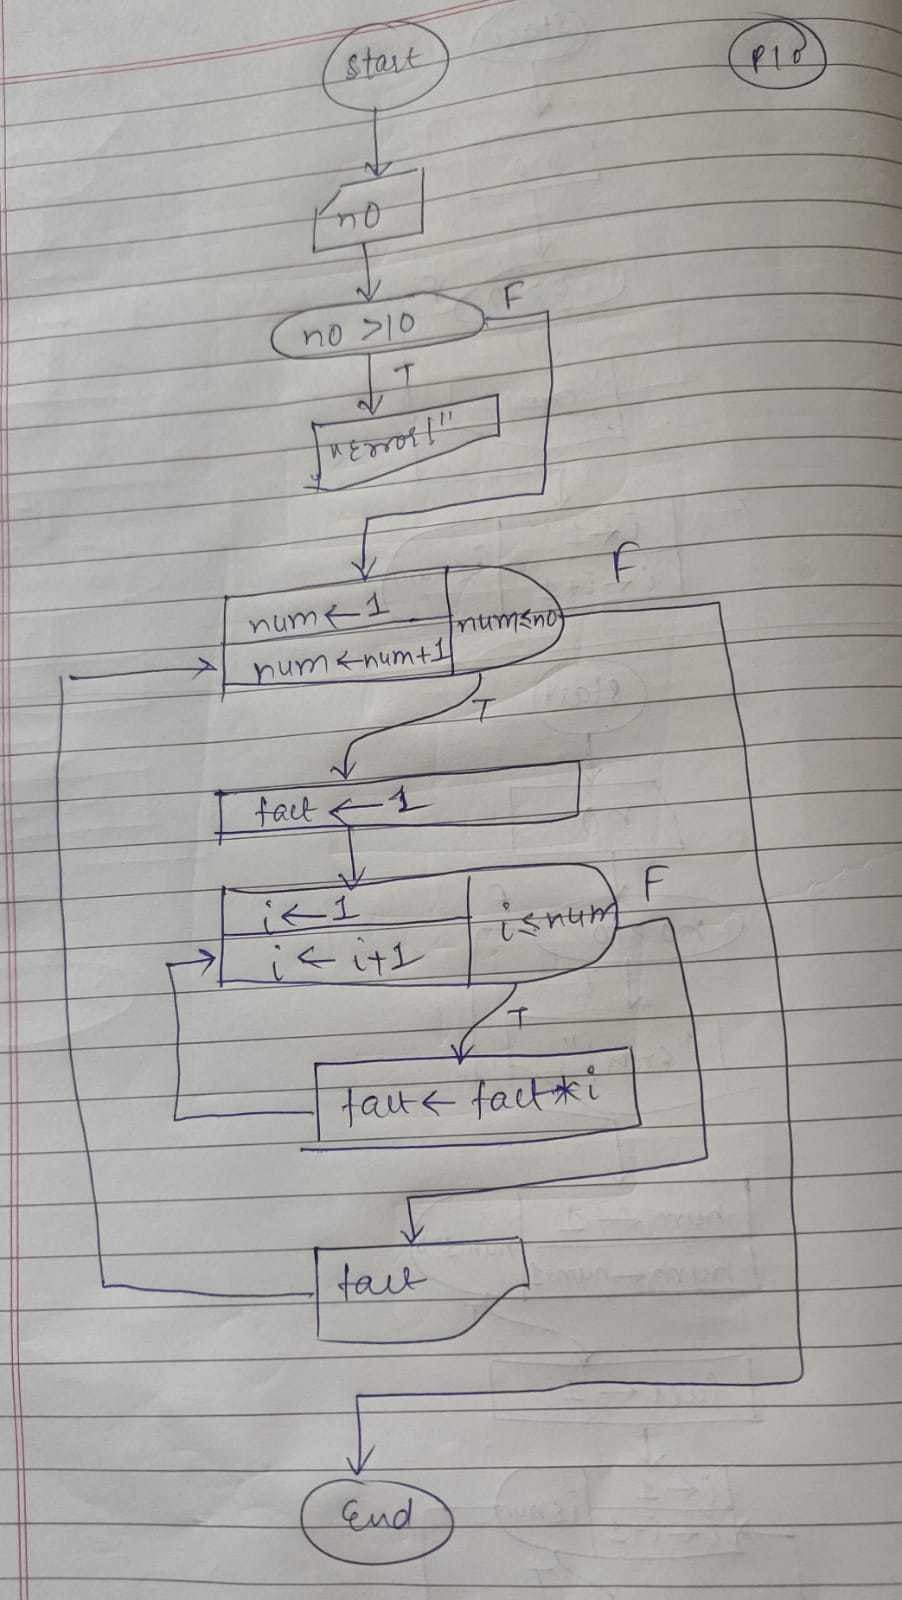 start
P10
no
no >10
F
T
"Error!"
num ← 1
num ← num+1
num ≤ no
F
T
fact ← 1
i ← 1
i ← i+1
i ≤ num
F
T
fact ← fact * i
fact
End